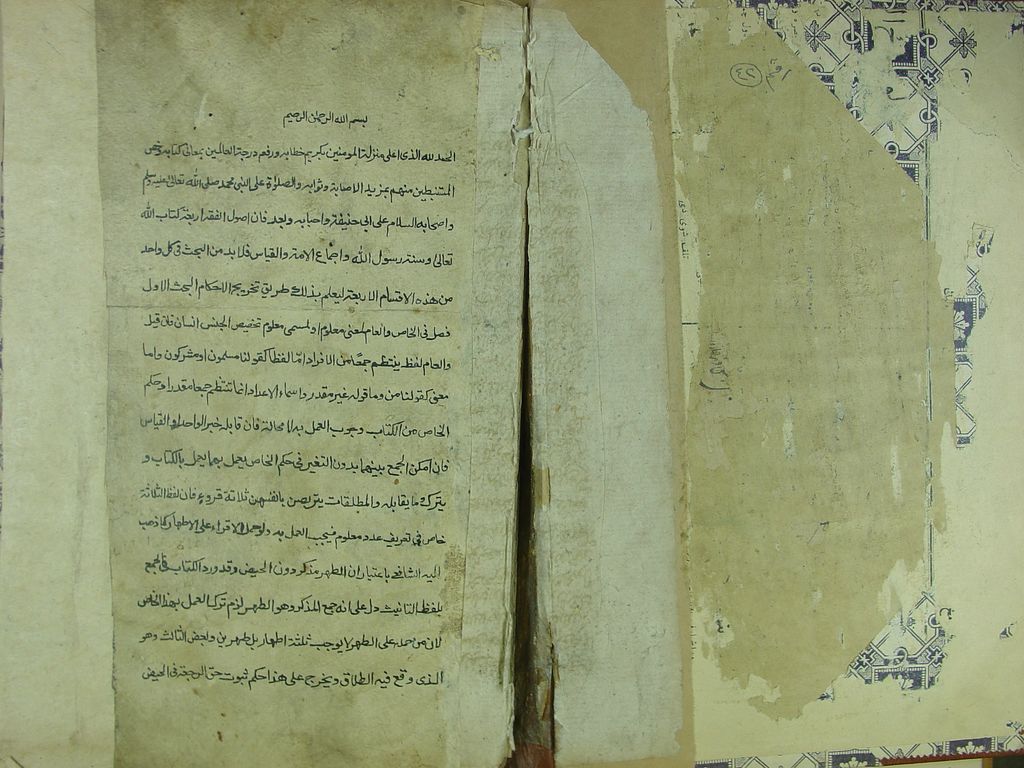 بسم الله الرحمن الرحيم
الحمد لله الذى اعلى منزلة المومنين بكريم خطابه ورفع درجة العالمين بمعانى كتابه وخص
المستنبطين منهم بمزيد الاصابة وثوابه والصلوة على النبى محمد صلى الله تعالى عليه وسلم
واصحابه السلام على ابى حنيفة واحبابه وبعد فان اصول الفقه اربعة كتاب الله
تعالى وسنة رسول الله واجماع الامة والقياس فلا بد من البحث فى كل واحد
من هذه الاقسام الاربعة ليعلم بذلك طريق تخريج الاحكام البحث الاول
فصل فى الخاص والعام لمعنى معلوم او لمسمى معلوم تخصص الجنس انسان فان قيل
والعام لفظ ينتظم جمعًا من الافراد امّا لفظا كقولنا مسلمون او مشركون واما
معنى كقولنا من وما قوله غير مقدر واسماء الاعداد انما تنتظم جمعا مقدرا وحكم
الخاص من الكتاب وجوب العمل به لا محالة فان قابله خبر الواحد او القياس
فان امكن الجمع بينهما بدون التغير فى حكم الخاص يعمل بهما يعمل بالكتاب و
يترك ما يقابله والمطلقات يتربصن بانفسهن ثلاثة قروء فان لفظ الثلاثة
خاص فى تعريف عدد معلوم فيجب العمل به ولو حمل الاقراء على الاطهار كما ذهب
اليه الشافعے باعتبار ان الطهر مذكر دون الحيض وقد ورد الكتاب فى الجمع
بلفظ التانيث دل على انه جمع المذكر وهو الطهر لزم ترك العمل بهذا الخاص
لان من حمله على الطهر لا يوجب ثلثة اطهار بل طهرين وبعض الثالث وهو
الذى وقع فيه الطلاق ويخرج على هذا حكم ثبوت حق الرجعة فى الحيض
رقم ٤٢